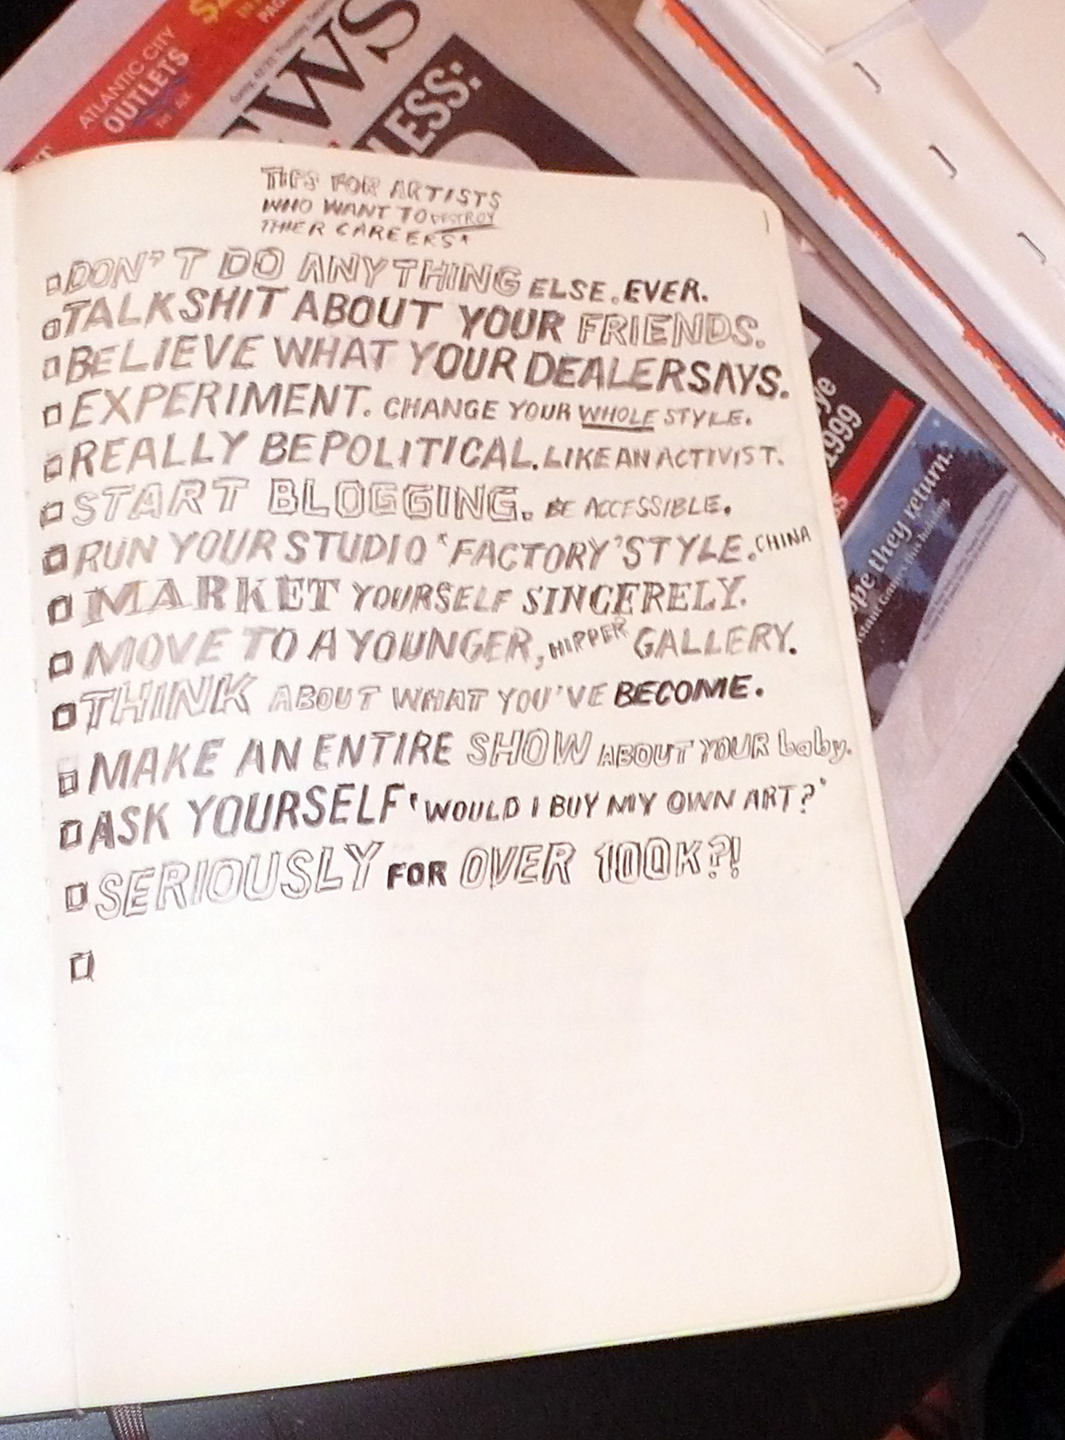 ATLANTIC CITY
OUTLETS
WS
LESS:
TIPS FOR ARTISTS
WHO WANT TO DESTROY
THIER CAREERS*
DON'T DO ANYTHING ELSE. EVER.
TALK SHIT ABOUT YOUR FRIENDS.
BELIEVE WHAT YOUR DEALER SAYS.
EXPERIMENT. CHANGE YOUR WHOLE STYLE.
REALLY BE POLITICAL. LIKE AN ACTIVIST.
START BLOGGING. BE ACCESSIBLE.
RUN YOUR STUDIO 'FACTORY' STYLE. CHINA
MARKET YOURSELF SINCERELY.
MOVE TO A YOUNGER, HIPPER GALLERY.
THINK ABOUT WHAT YOU'VE BECOME.
MAKE AN ENTIRE SHOW ABOUT YOUR baby.
ASK YOURSELF 'WOULD I BUY MY OWN ART?'
SERIOUSLY FOR OVER 100K?!
ye
1999
ope they return.